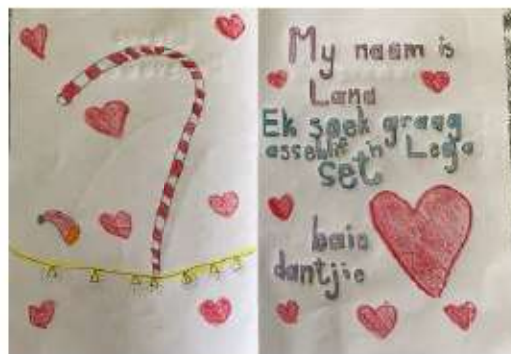 My naam is
Lana
Ek soek graag
asseblif 'n Lego
set
baie
dantjie